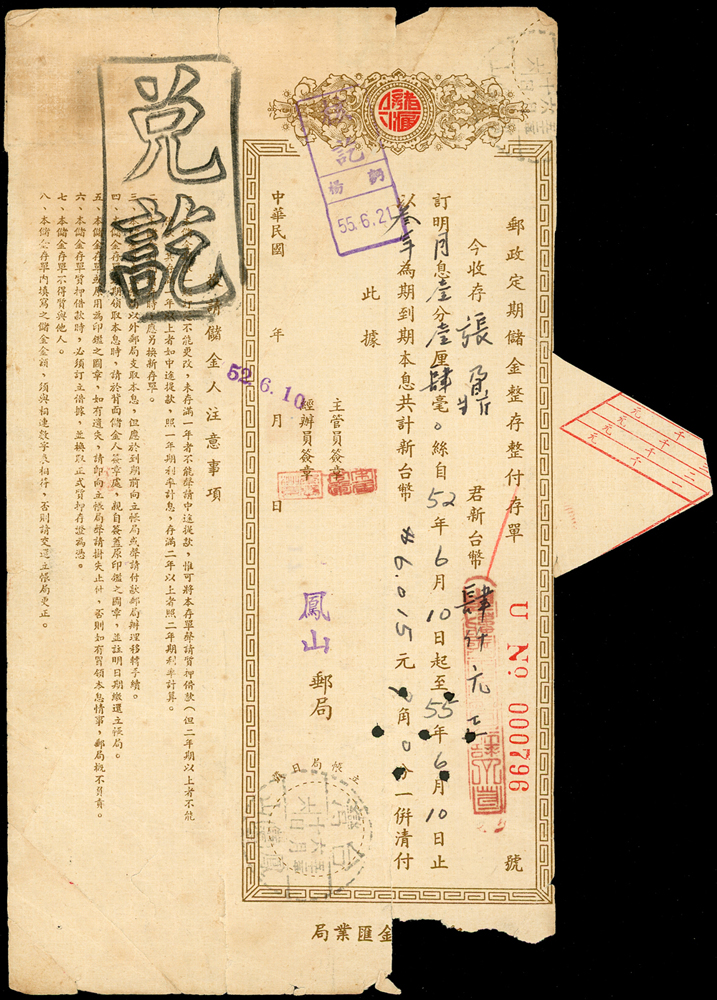 郵政定期儲金整存整付存單
U No 000796 號
今收存 張 君新台幣 肆仟元正
訂明月息壹分壹厘肆毫。絲自52年6月10日起至55年6月10日止
以叁年為期到期本息共計新台幣 6.015元 角0分一併清付
此據
主管員簽章
經辦員簽章
鳳山郵局
中華民國 年 月 日
52.6.10
55.6.21
訖
楊
立帳局日戳
金匯業局
兌訖
敬請儲金人注意事項
不能更改,未存滿一年者不能聲請中途提款,惟可將本存單聲請質押借款(但二年期以上者不能
年以上者如中途提款,照一年期利率計息,存滿二年以上者照二年期利率計算。
應另換新存單。
以外郵局支取本息,但應於到期前向立帳局或聲請付款郵局辦理移轉手續。
四、本儲金存單到期領取本息時,請於背面儲金人簽章處,親自簽蓋原印鑑之圖章,並註明日期繳還立帳局。
五、本儲金存單或原用為印鑑之圖章,如有遺失,請即向立帳局聲請掛失止付,否則如有冒領本息情事,郵局概不負責。
六、本儲金存單質押借款時,必須訂立借據,並換取正式質押存證為憑。
七、本儲金存單不得質與他人。
八、本儲金存單內填寫之儲金金額,須與相連數字表相符,否則請交還立帳局更正。